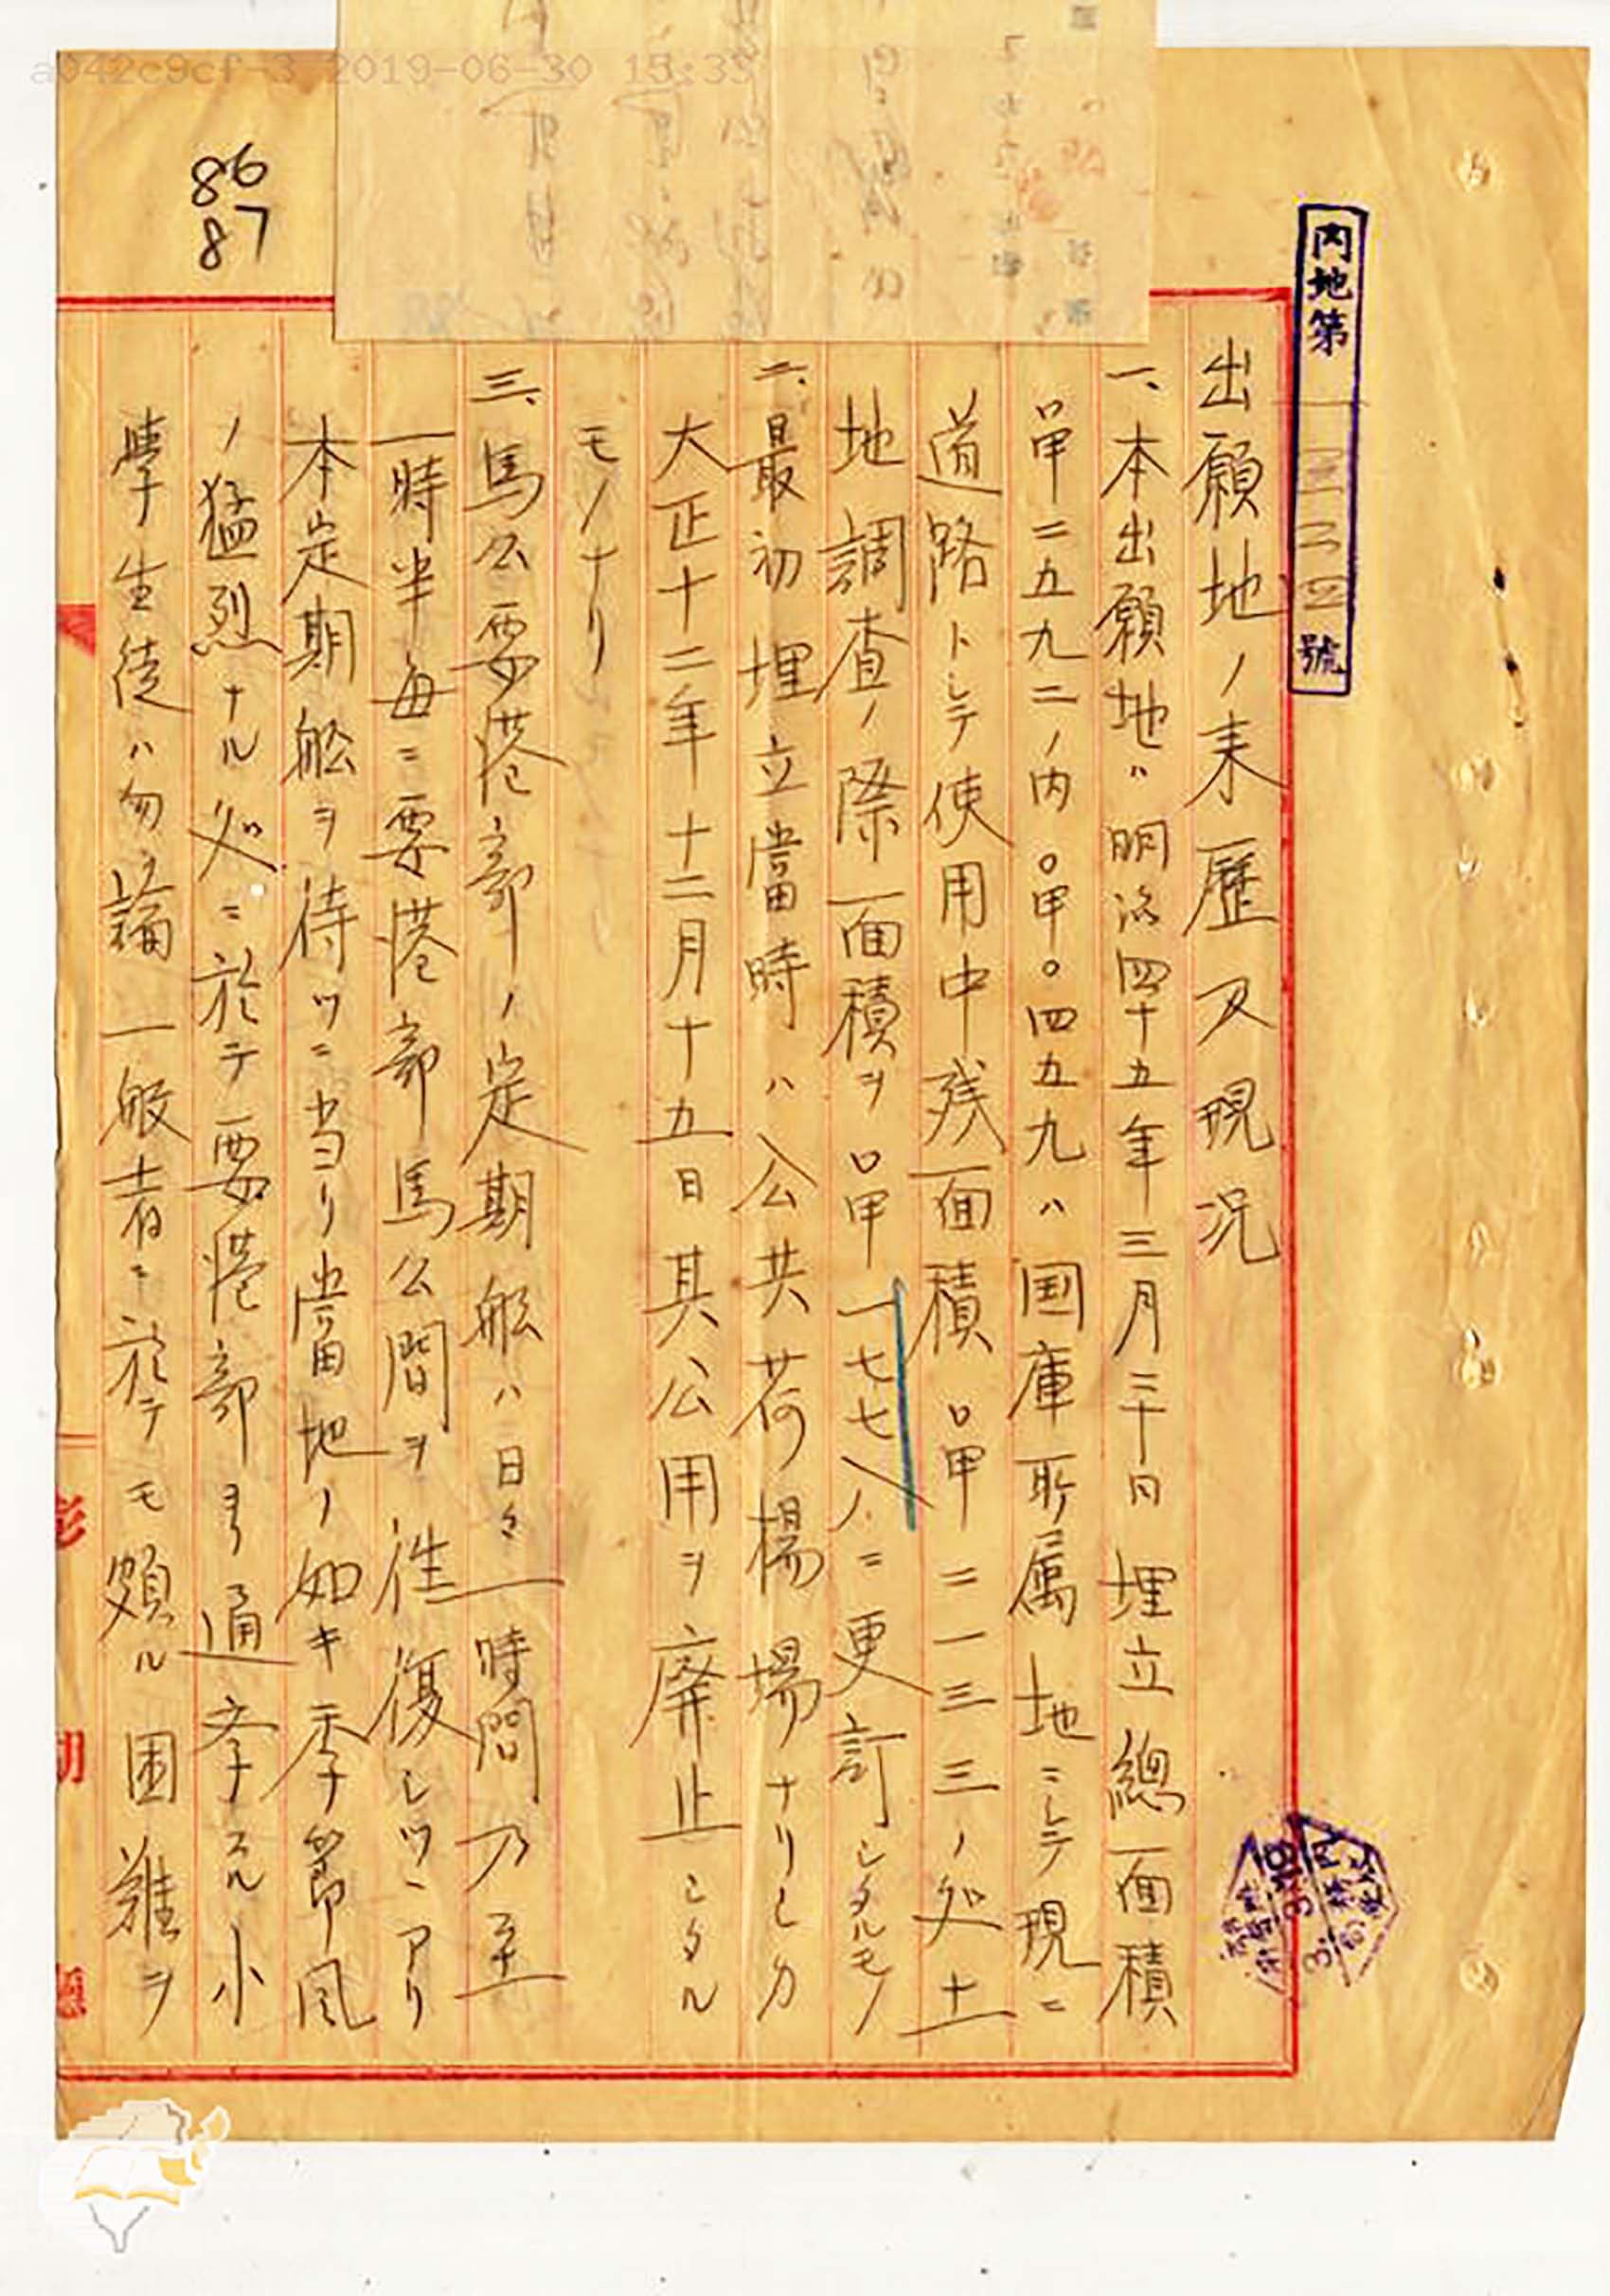 a042c9cf-3 2019-06-30 15:39
86
87
内地第 號
出願地ノ来歴及現况
一、本出願地ハ明治四十五年三月三十日埋立總面積
〇甲二五九二ノ内〇甲〇四五九ハ国庫所属地ニシテ現ニ
道路トシテ使用中残面積〇甲二一三三ノ処土
地調査ノ際面積ヲ〇甲一七七八ニ更訂シタルモノ
二、最初埋立當時ハ公共荷楊場ナリシカ
大正十二年十二月十五日其公用ヲ廃止シタル
モノナリ
三、馬公要港部ノ定期舩ハ日々一時間乃至
一時半毎ニ要港部馬公間ヲ往復シツヽアリ
本定期舩ヲ待ツニ当リ當地ノ如キ季節風
ノ猛烈ナル処ニ於テ要港部ヨリ通学スル小
學生徒ハ勿論一般者ニ於テモ頗ル困難ヲ